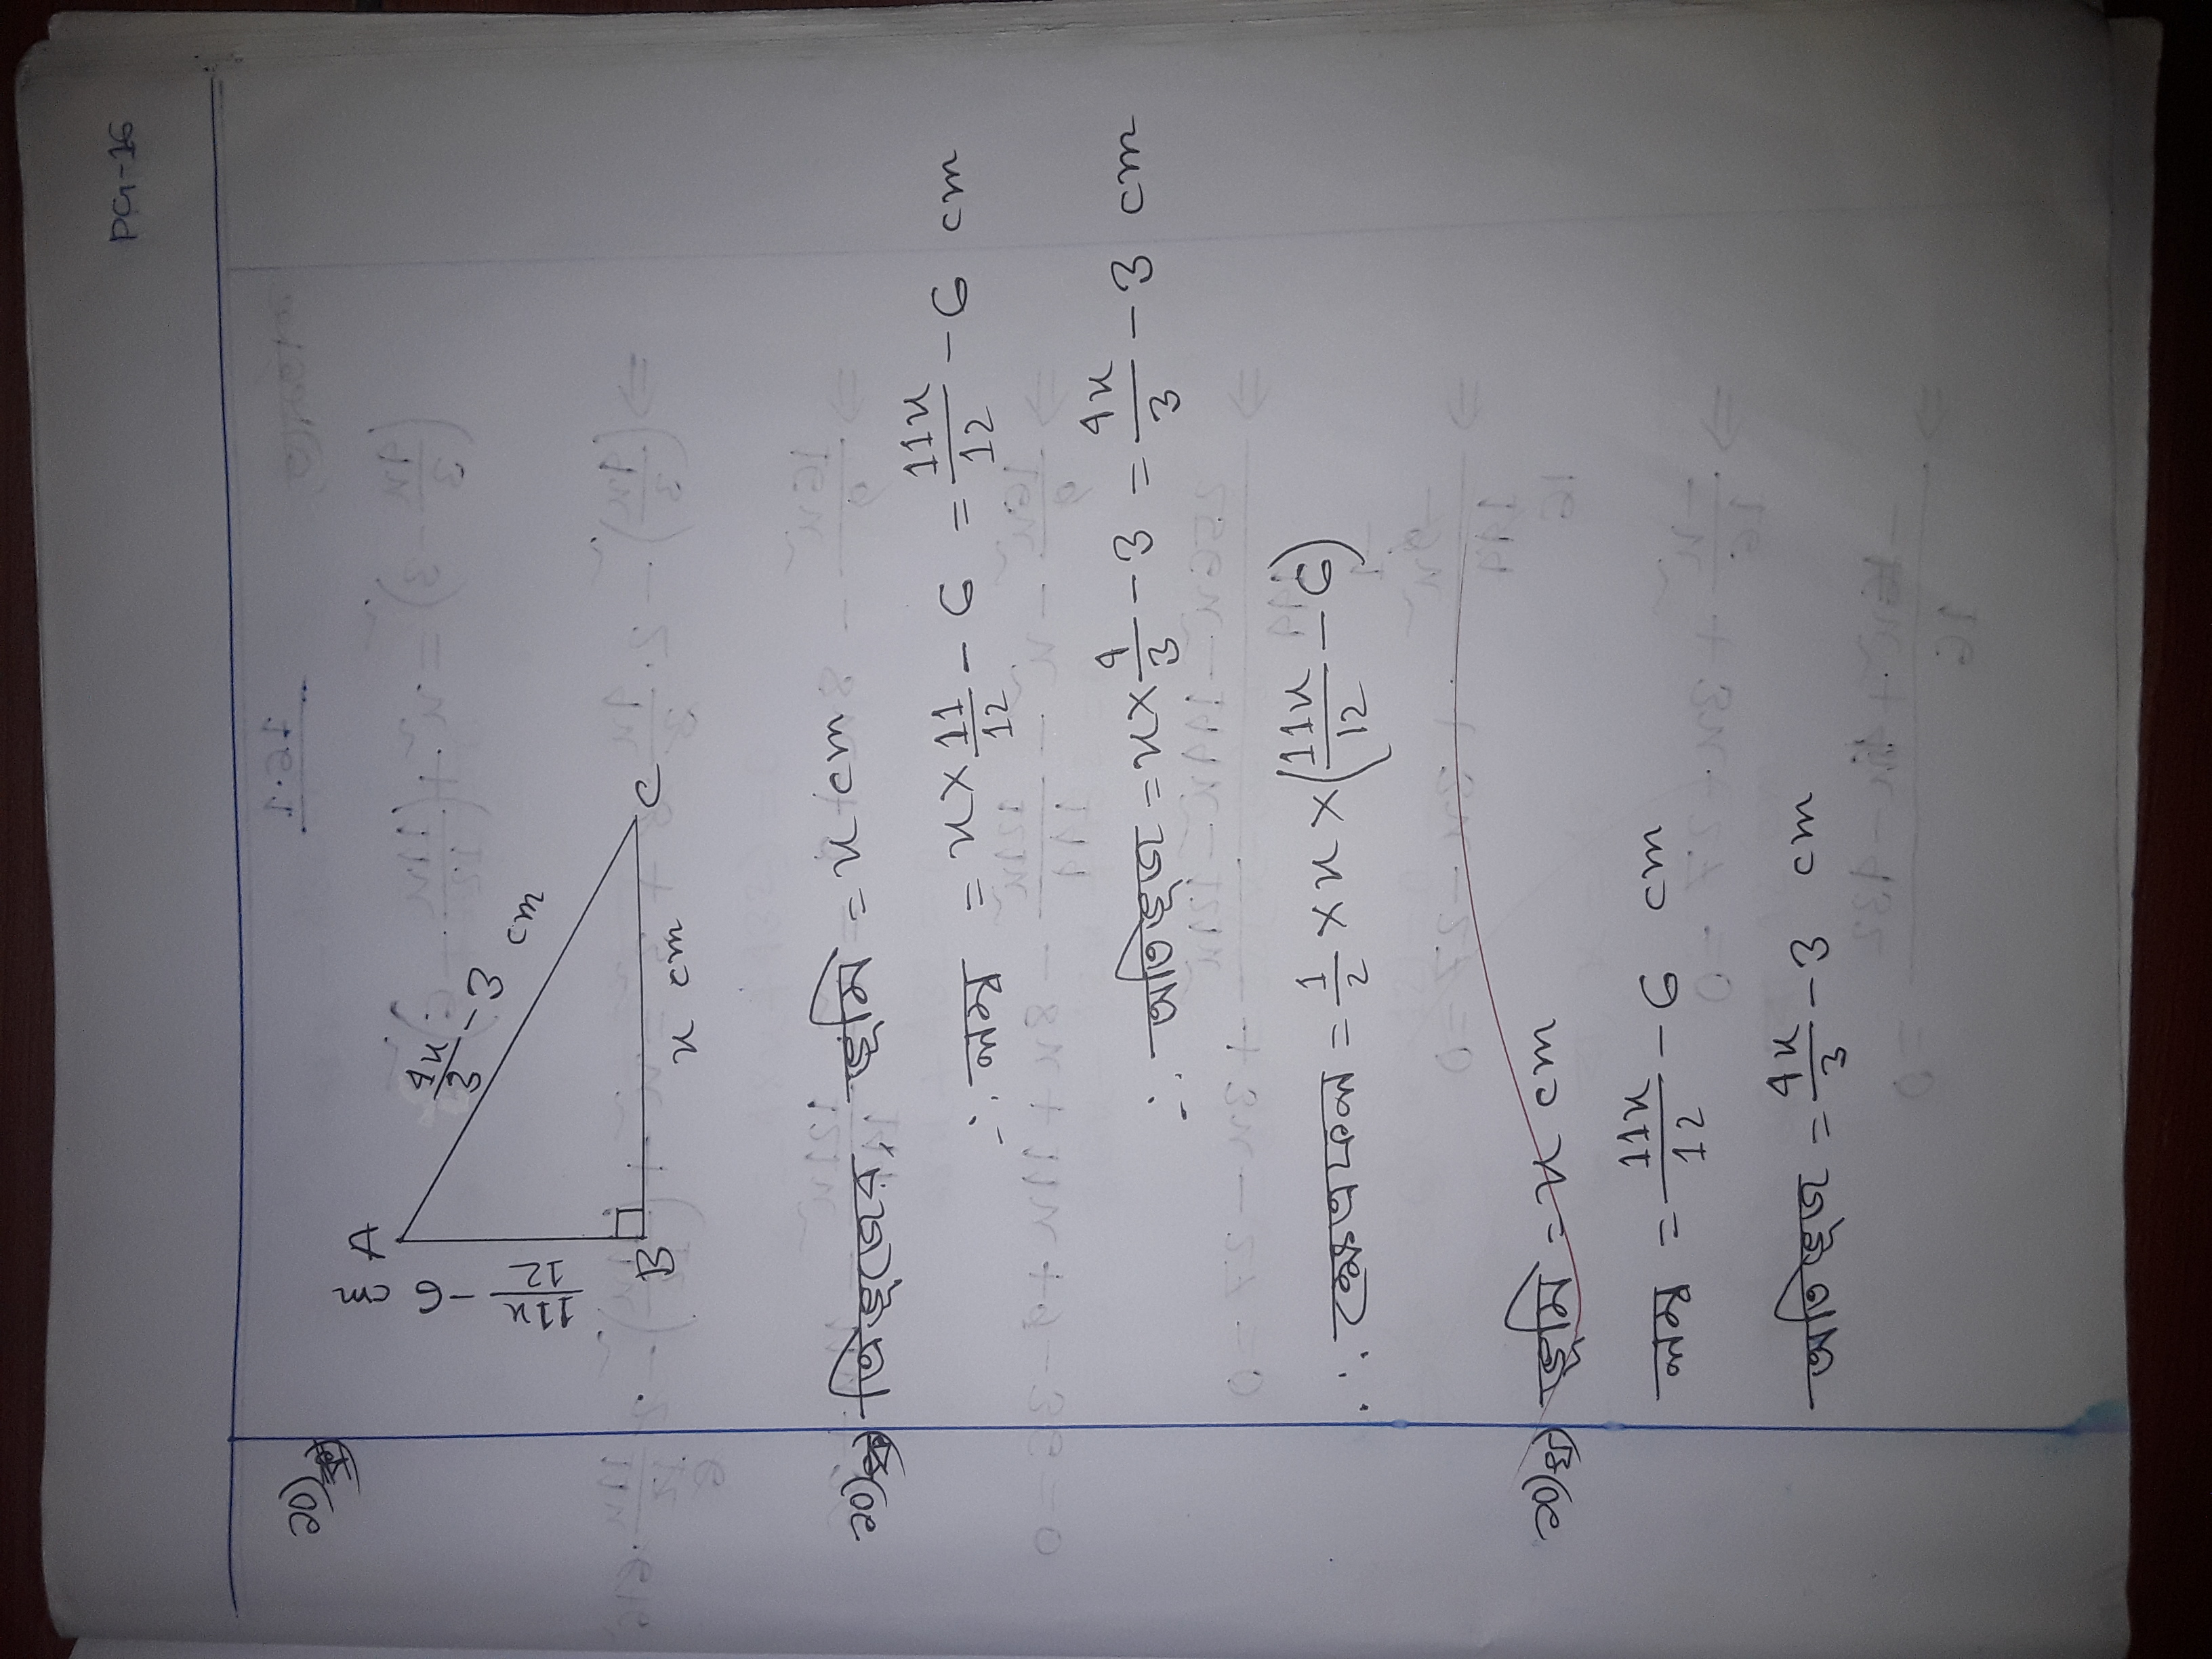 PG-16
১০)
A
11x/12 - 6 cm
4x/3 - 3 cm
B
C
x cm
১০) ত্রিভূজের, ভূমি = x cm
∴ লম্ব = x × 11/12 - 6 = 11x/12 - 6 cm
∴ অতিভূজ = x × 4/3 - 3 = 4x/3 - 3 cm
∴ ক্ষেত্রফল = 1/2 × x × (11x/12 - 6)
১০) ভূমি = x cm
লম্ব = 11x/12 - 6 cm
অতিভূজ = 4x/3 - 3 cm